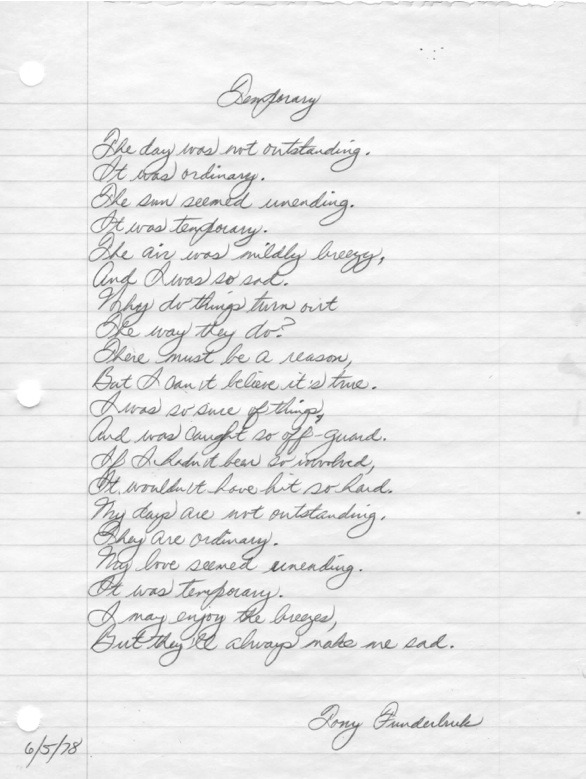 Temporary
The day was not outstanding.
It was ordinary.
The sun seemed unending.
It was temporary.
The air was mildly breezy,
And I was so sad.
Why do things turn out
The way they do?
There must be a reason,
But I can't believe it's true.
I was so sure of things,
And was caught so off-guard.
If I hadn't been so involved,
It wouldn't have hit so hard.
My days are not outstanding.
They are ordinary.
My love seemed unending.
It was temporary.
I may enjoy the breezes,
But they'll always make me sad.
Tony Funderburk
6/5/78